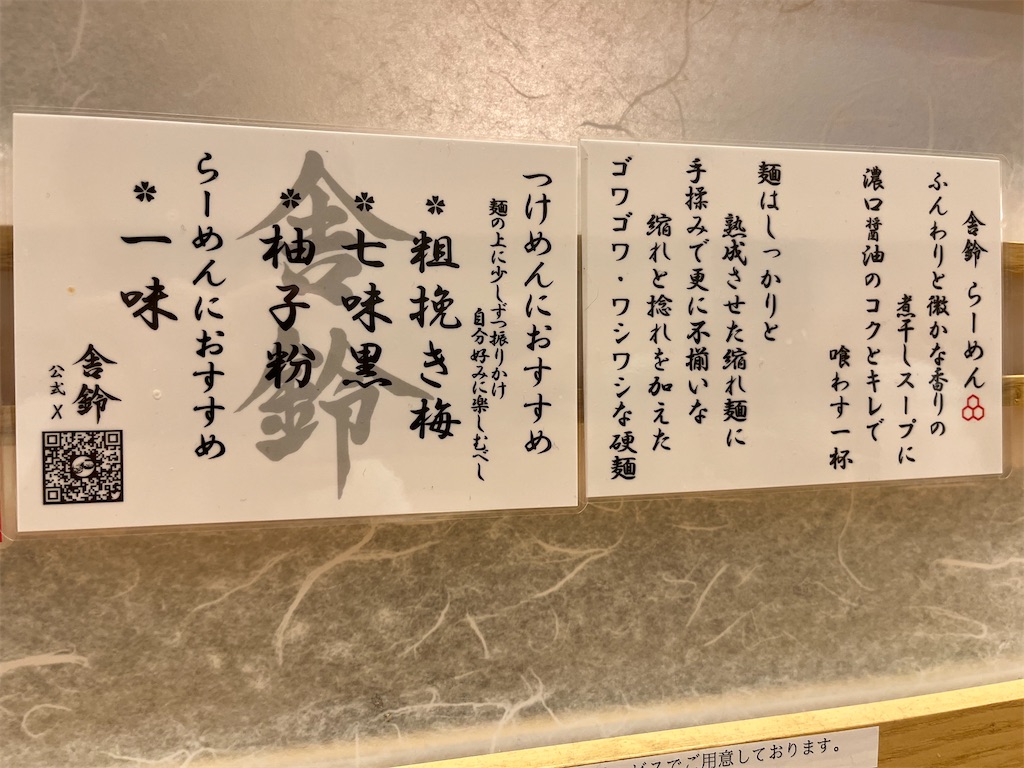 舎鈴 らーめん
ふんわりと微かな香りの
煮干しスープに
濃口醤油のコクとキレで
喰わす一杯
麺はしっかりと
熟成させた縮れ麺に
手揉みで更に不揃いな
縮れと捻れを加えた
ゴワゴワ・ワシワシな硬麺
つけめんにおすすめ
麺の上に少しずつ振りかけ
自分好みに楽しむべし
粗挽き梅
七味黒
柚子粉
舎鈴
らーめんにおすすめ
一味
舎鈴
公式 X
ビスでご用意しております。